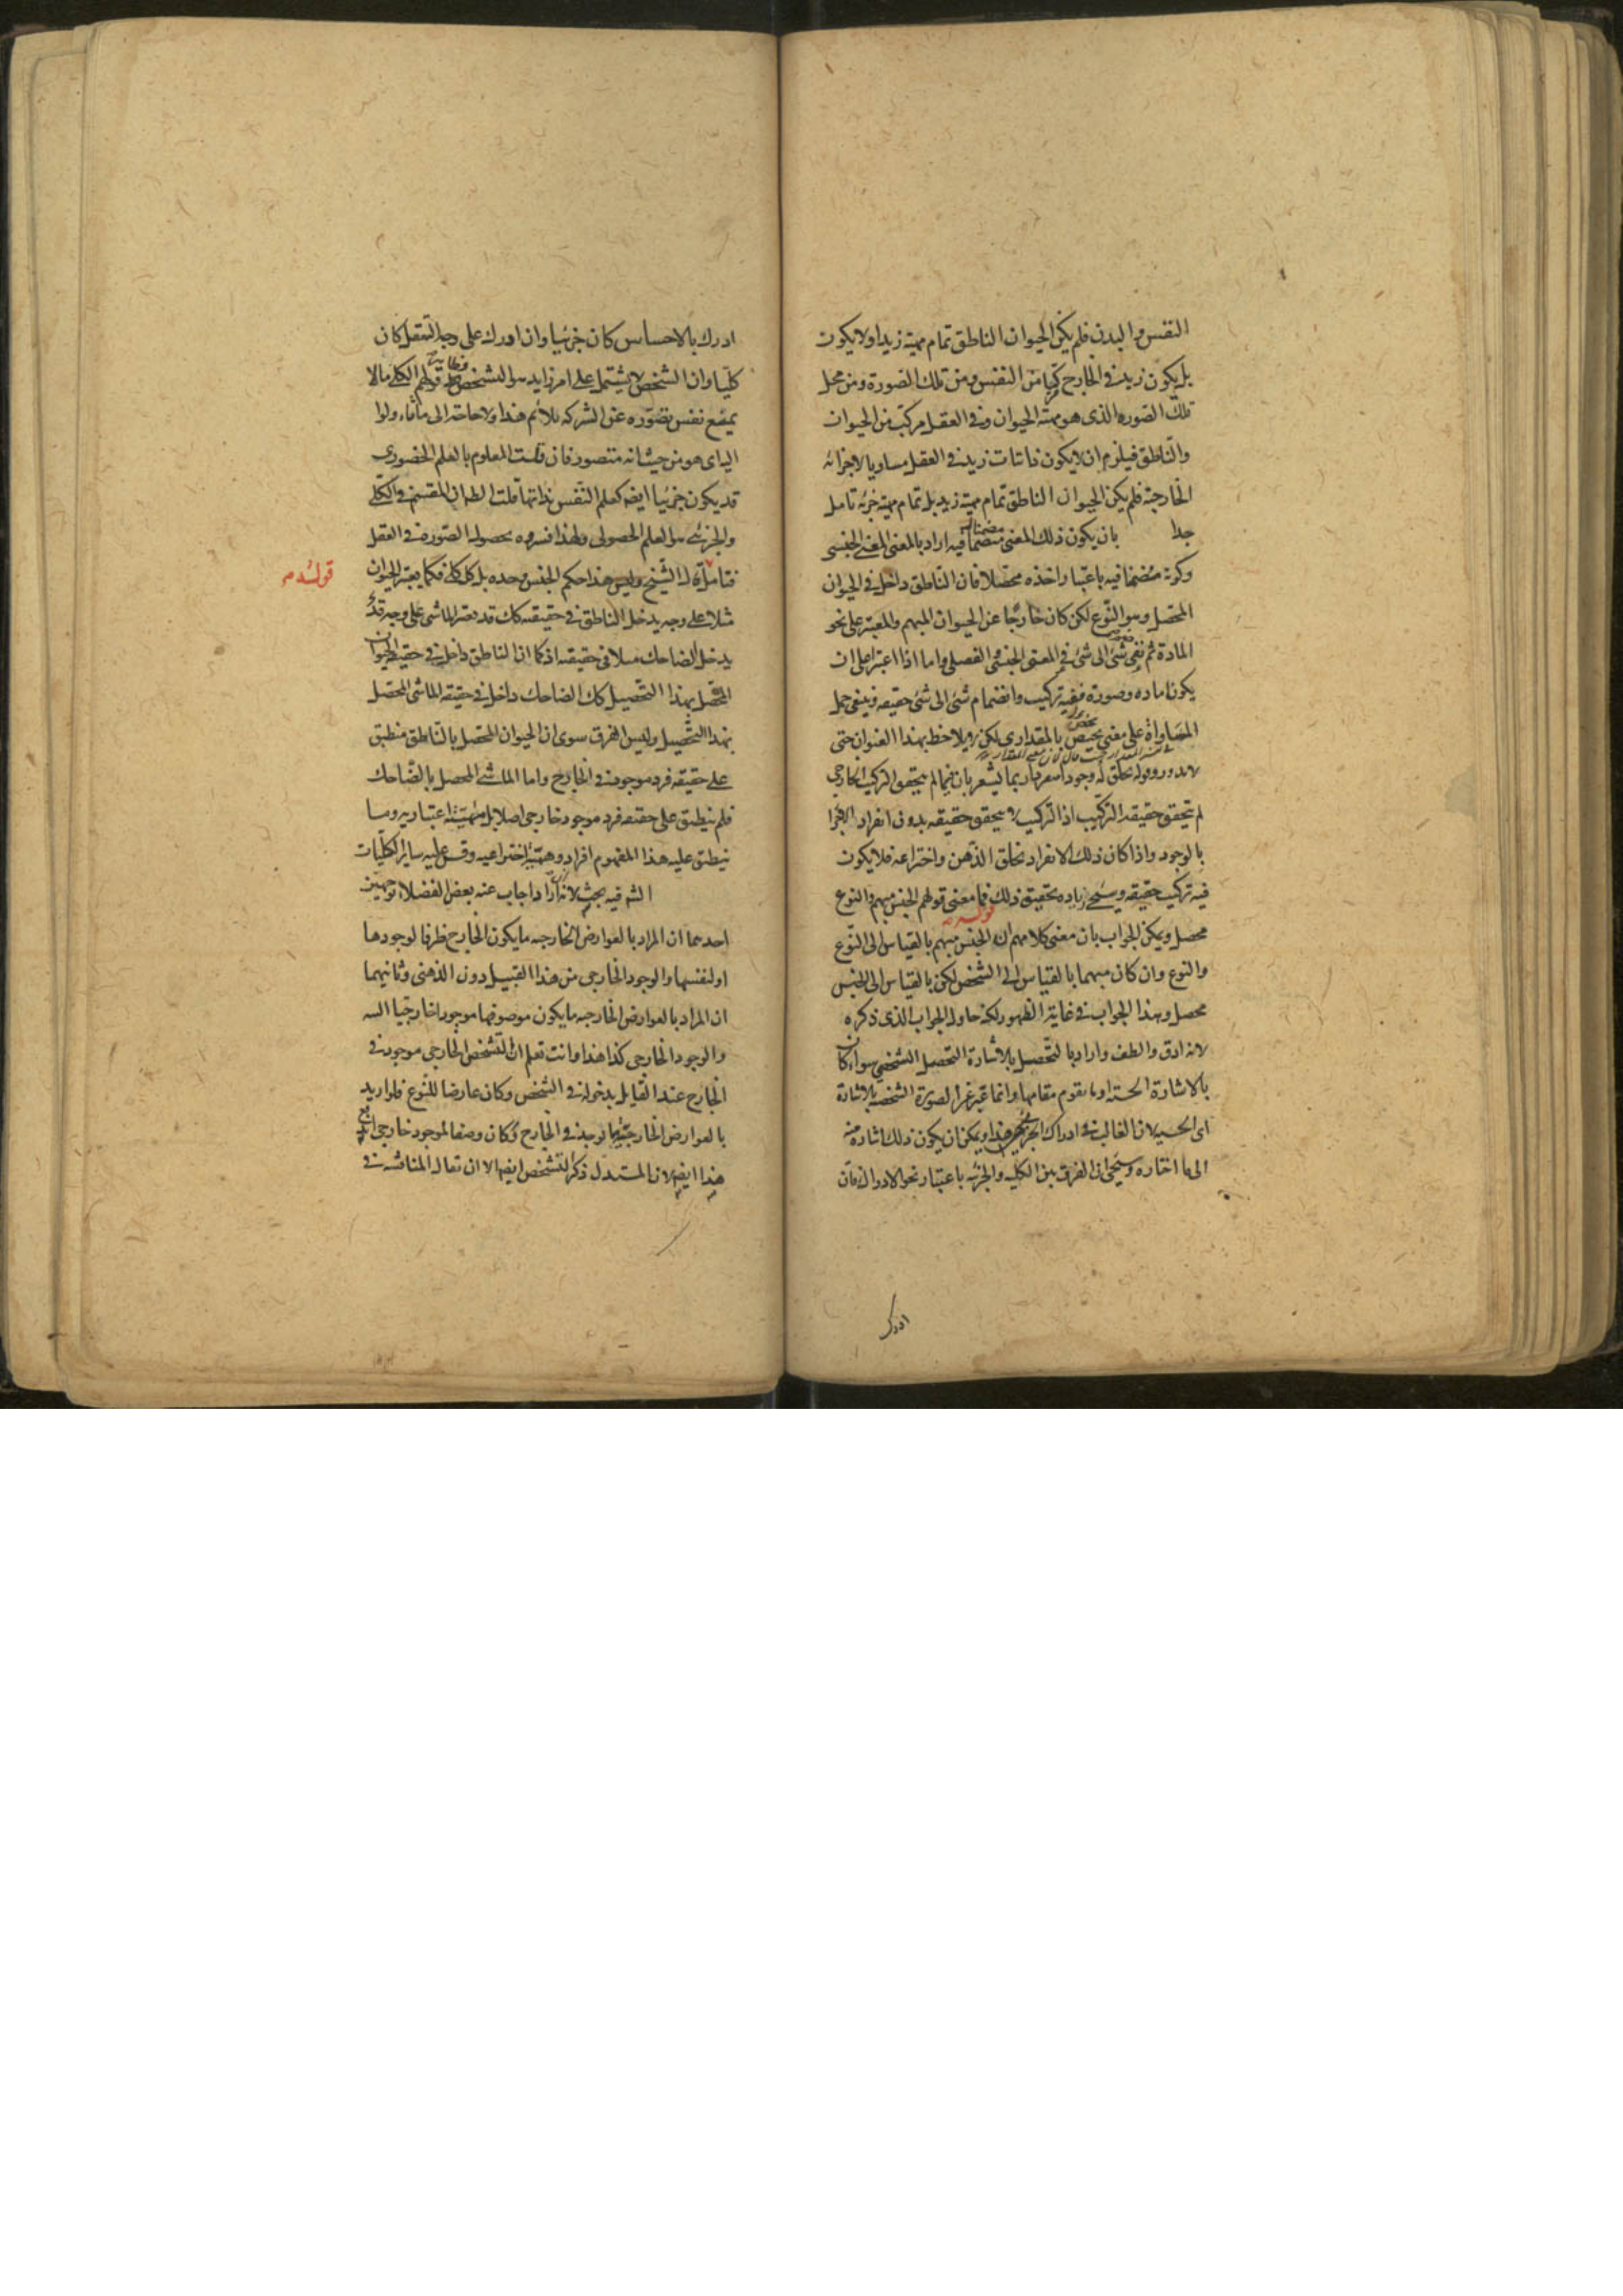 النفس والبدن فلم يكن الحيوان الناطق تمام مهية زيد اولا يكون
بل يكون زيد في الخارج مركبا من النفس ومن تلك الصورة ومن محل
تلك الصورة الذى هو مهية الحيوان وفي العقل مركب من الحيوان
والناطق فيلزم ان لا يكون ذاتيات زيد في العقل مساويا لاجزائه
الخارجية فلم يكن الحيوان الناطق تمام مهية زيد بل تمام مهية جزئه تامل
جدا بان يكون ذلك المعنى متضمنا فيه اراد بالمعنى المعنى الجنسى
وكونه متضمنا فيه باعتبار اخذه محصلا فان الناطق داخل في الحيوان
المحصل وهو النوع لكن كان خارجا عن الحيوان المبهم والمعتبر على نحو
المادة ثم نفى شئ الى شئ في المعنى الجنسى والفصلى واما اذا اعتبر على ان
يكونا مادة وصورة ففيه تركيب وانضمام شئ الى شئ حقيقة فينبغى حمل
المساواة على معنى يختص بالمقدارى لكن لا يلاحظ بهذا العنوان حتى
لا يدور وقوله يخلق له وجودا ربما يشعر بان فيما لم يتحقق التركيب الخارجى
لم يتحقق حقيقة التركيب اذ التركيب لا يتحقق حقيقة بدون انفراد الاجزا
بالوجود واذا كان ذلك الانفراد بخلق الذهن واختراعه فلا يكون
فيه تركيب حقيقة وسيجى زيادة تحقيق ذلك فما معنى قولهم الجنس مبهم والنوع
قوله
محصل ويمكن الجواب بان معنى كلامهم ان الجنس مبهم بالقياس الى النوع
والنوع وان كان مبهما بالقياس الى الشخص لكن بالقياس الى الجنس
محصل وهذا الجواب في غاية الظهور لكنه حاول الجواب الذى ذكره
لانه ادق والطف واراد بالتحصيل بالاشارة التحصيل الشخصى سواء كان
بالاشارة الحسية او ما يقوم مقامها وانما عبر عن الصورة الشخصية بالاشارة
اى الحسية لان الغالب في ادراك هذا ويمكن ان يكون ذلك اشارة منه
الى ما اختاره وسيجى ان الفرق بين الكلية والجزئية باعتبار نحو الادراك فان
ادرك
ادرك بالاحساس كان جزئيا وان ادرك على وجه التعقل كان
كليا وان الشخص لا يشتمل على امر زايد هو التشخص قولهم الكلى ما لا
يمنع نفس تصوره عن الشركة يلائم هذا ولا حاجة الى
اليه اى هو من حيث انه متصور فان قلت المعلوم بالعلم الحضورى
قد يكون جزئيا ايضه كعلم النفس بذاتها قلت المقسم في الكلى
والجزئى هو العلم الحصولى ولهذا فسروه بحصول الصورة في العقل
قوله
فتامل قال الشيخ وليس هذا حكم الجنس وحده بل كل كلى فكما يعتبر الحيوان
مثلا على وجه يدخل الناطق في حقيقته كك قد يعتبر الماشى على وجه قد
يدخل الضاحك مثلا في حقيقته اذ كما ان الناطق داخل في حقيقة الحيوان
المحصل بهذا التحصيل كك الضاحك داخل في حقيقة الماشى المحصل
بهذا التحصيل وليس الفرق سوى ان الحيوان المحصل بالناطق منطبق
على حقيقة فرد موجود في الخارج واما الماشى المحصل بالضاحك
فلم ينطبق على حقيقة فرد موجود خارجى اصلا بل مهيته اعتبارية وما
ينطبق عليه هذا المفهوم افراد وهمية اختراعية وقس عليه ساير الكليات
فيه بحث لانه اجاب عنه بعض الفضلاء توجهين
احدهما ان المراد بالعوارض الخارجية ما يكون الخارج ظرفا لوجودها
او لنفسها والوجود الخارجى من هذا القبيل دون الذهنى وثانيهما
ان المراد بالعوارض الخارجية ما يكون موصوفها موجودا خارجيا البتة
والوجود الخارجى كذا هذا وانت تعلم ان التشخص الخارجى موجود في
الخارج عند القايل بدخوله في الشخص وكان عارضا للنوع فلو اريد
بالعوارض الخارجية ما يوجد في الخارج وكان وصفا لموجود خارجى
هذا ايضه لان المستدل ذكر التشخص ايضه الا ان يقال المناقشة في